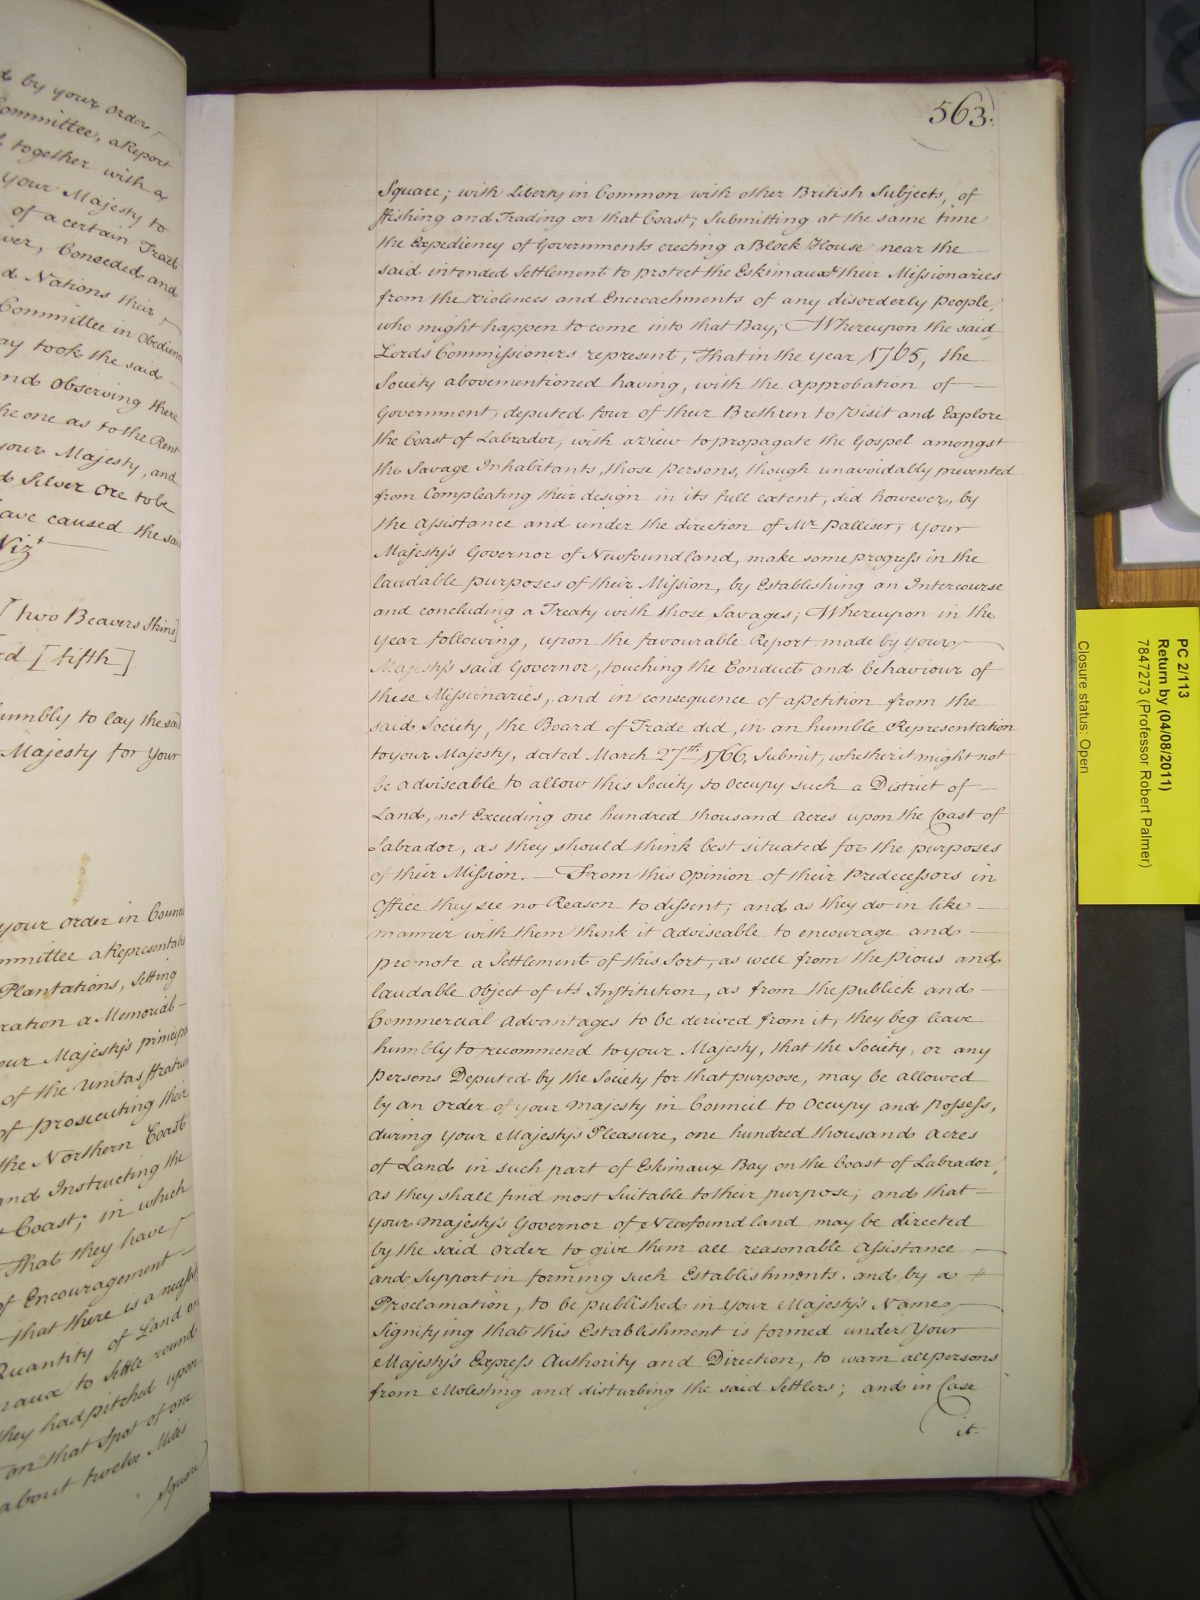 d by your Order
Committee, a Report
together with a
your Majesty to
of a certain Tract
ver, Conceded and
d Nations their
Committee in Obedience
ay took the said
nd Observing there
he one as to the Rent
your Majesty, and
d Silver Ore to be
ave caused the said
Vizt
[two Beavers Skins]
rd [fifth]
umbly to lay the said
Majesty for Your
your Order in Council
mmittee a Representation
Plantations, setting
ration a Memorial
our Majesty's principal
of the Unitas ffratrum
of prosecuting their
the Northern Coast
and Instructing the
Coast; in which
That they have
of Encouragement
that there is a necessity
Quantity of Land on
maux to Settle round
they had pitched upon
on that Spot of one
about twelve Miles
Square
563.
Square; with Liberty in Common with other British Subjects, of
ffishing and Trading on that Coast; Submitting at the same time
the Expediency of Governments erecting a Block House near the
said intended Settlement to protect the Eskimaux & their Missionaries
from the Violences and Encroachments of any disorderly People,
who might happen to come into that Bay; Whereupon the said
Lords Commissioners represent, That in the year 1765, the
Society abovementioned having, with the approbation of
Government, deputed four of their Brethren to Visit and Explore
the Coast of Labrador, with a View to propagate the Gospel amongst
the Savage Inhabitants, those persons, though unavoidably prevented
from Compleating their design in its full extent, did however, by
the Assistance and under the direction of Mr. Palliser, Your
Majesty's Governor of Newfoundland, make some progress in the
laudable purposes of their Mission, by Establishing an Intercourse
and concluding a Treaty with those Savages; Whereupon in the
year following, upon the favourable Report made by your
Majesty's said Governor, touching the Conduct and behaviour of
these Missionaries, and in consequence of a Petition from the
said Society, the Board of Trade did, in an humble Representation
to your Majesty, dated March 27th 1766, Submit, whether it might not
be adviseable to allow this Society to Occupy such a District of
Land, not Exceeding one hundred thousand Acres upon the Coast of
Labrador, as they should think best situated for the purposes
of their Mission. — From this Opinion of their Predecessors in
Office they see no Reason to dissent; and as they do in like
manner with them think it adviseable to encourage and
promote a Settlement of this Sort, as well from the Pious and
laudable Object of its Institution, as from the publick and
Commercial Advantages to be derived from it, they beg leave
humbly to recommend to your Majesty, that the Society, or any
Persons Deputed by the Society for that purpose, may be allowed
by an Order of your Majesty in Council to Occupy and Possess,
during Your Majesty's Pleasure, one hundred thousand Acres
of Land in such part of Eskimaux Bay on the Coast of Labrador,
as they shall find most Suitable to their purpose; and that
your Majesty's Governor of Newfoundland may be directed
by the said Order to give them all reasonable Assistance
and Support in forming such Establishments, and by a
Proclamation, to be published in Your Majesty's Name,
Signifying that this Establishment is formed under Your
Majesty's Express Authority and Direction, to warn all persons
from Molesting and disturbing the said Settlers; and in Case
it
PC 2/113
Return by (04/08/2011)
7847273 (Professor Robert Palmer)
Closure status: Open